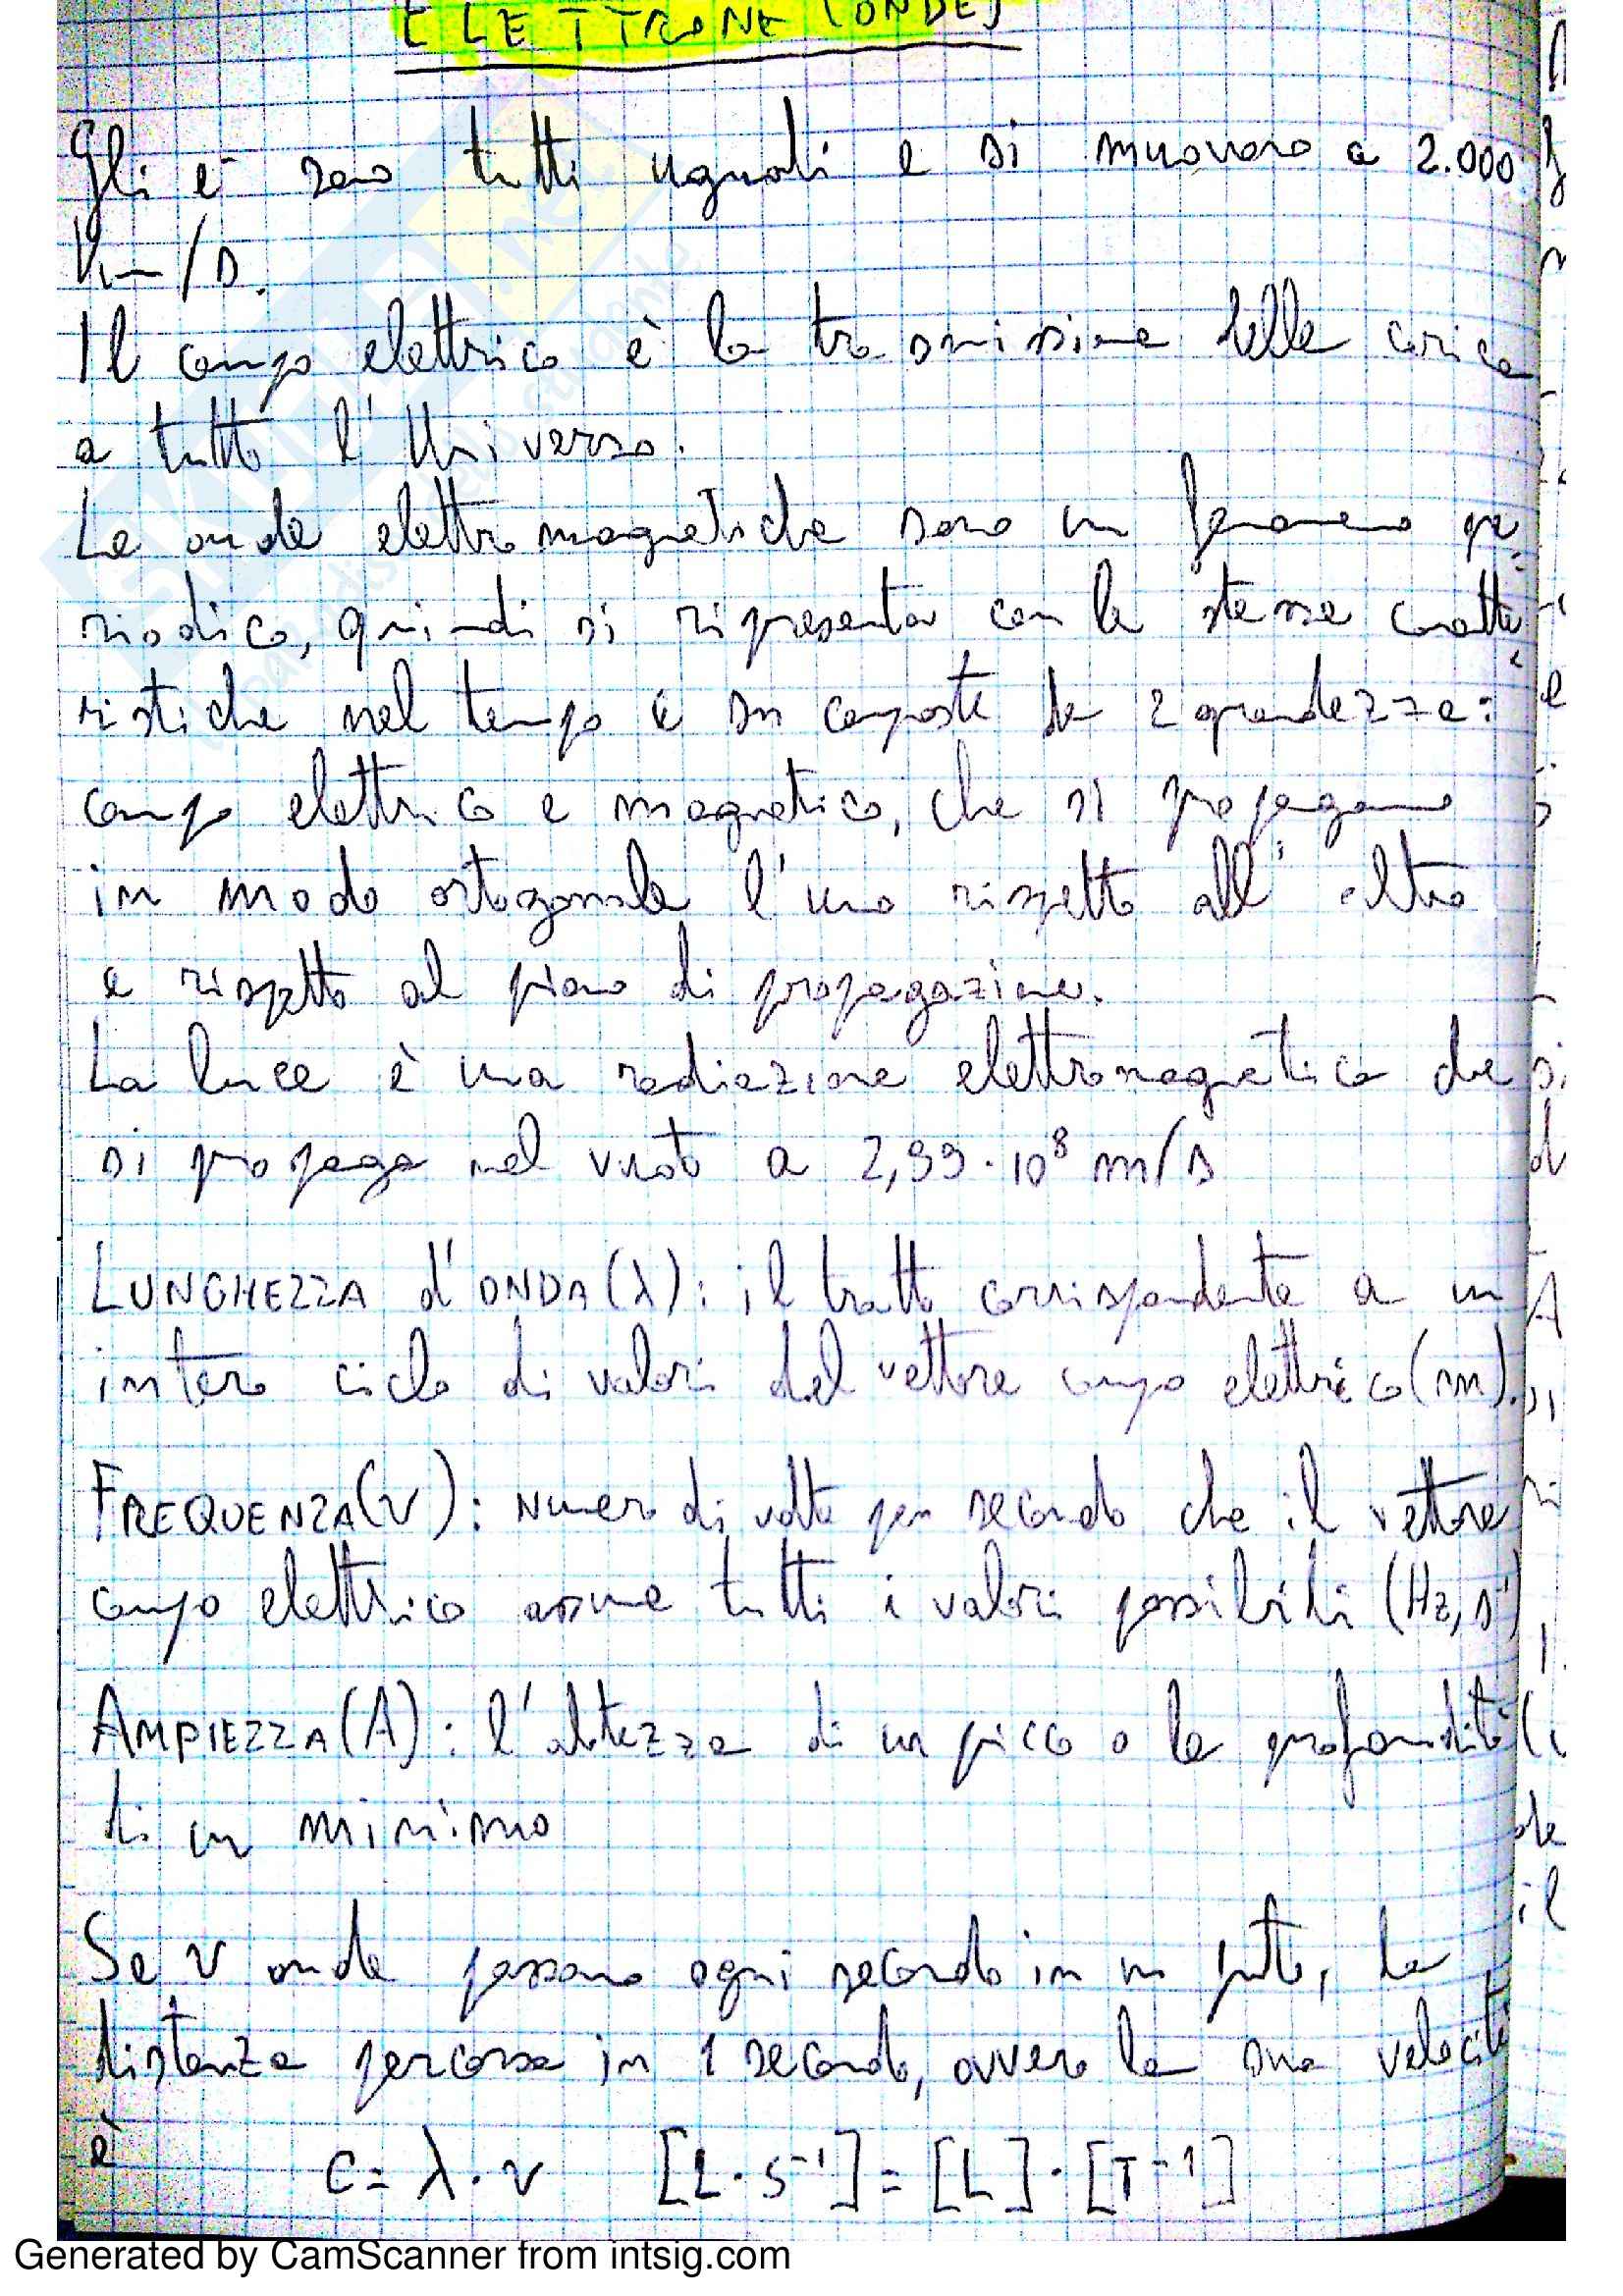 ELETTRONE (ONDE)
Gli e⁻ sono tutti uguali e si muovono a 2.000
Km/s.
Il campo elettrico è la trasmissione delle carica
a tutto l'Universo.
Le onde elettromagnetiche sono un fenomeno pe-
riodico, quindi si ripresenta con le stesse caratte-
ristiche nel tempo e son composte da 2 grandezze:
campo elettrico e magnetico, che si propagano
in modo ortogonale l'uno rispetto all'altro
e rispetto al piano di propagazione.
La luce è una radiazione elettromagnetica che
si propaga nel vuoto a 2,99·10⁸ m/s
LUNGHEZZA d'ONDA (λ): il tratto corrispondente a un
intero ciclo di valori del vettore campo elettrico (m).
FREQUENZA (ν): numero di volte per secondo che il vettore
campo elettrico assume tutti i valori possibili (Hz, s⁻¹)
AMPIEZZA (A): l'altezza di un picco o la profondità
di un minimo
Se ν onde passano ogni secondo in un punto, la
distanza percorsa in 1 secondo, ovvero la sua velocità
è c = λ·ν [L·S⁻¹] = [L]·[T⁻¹]
Generated by CamScanner from intsig.com